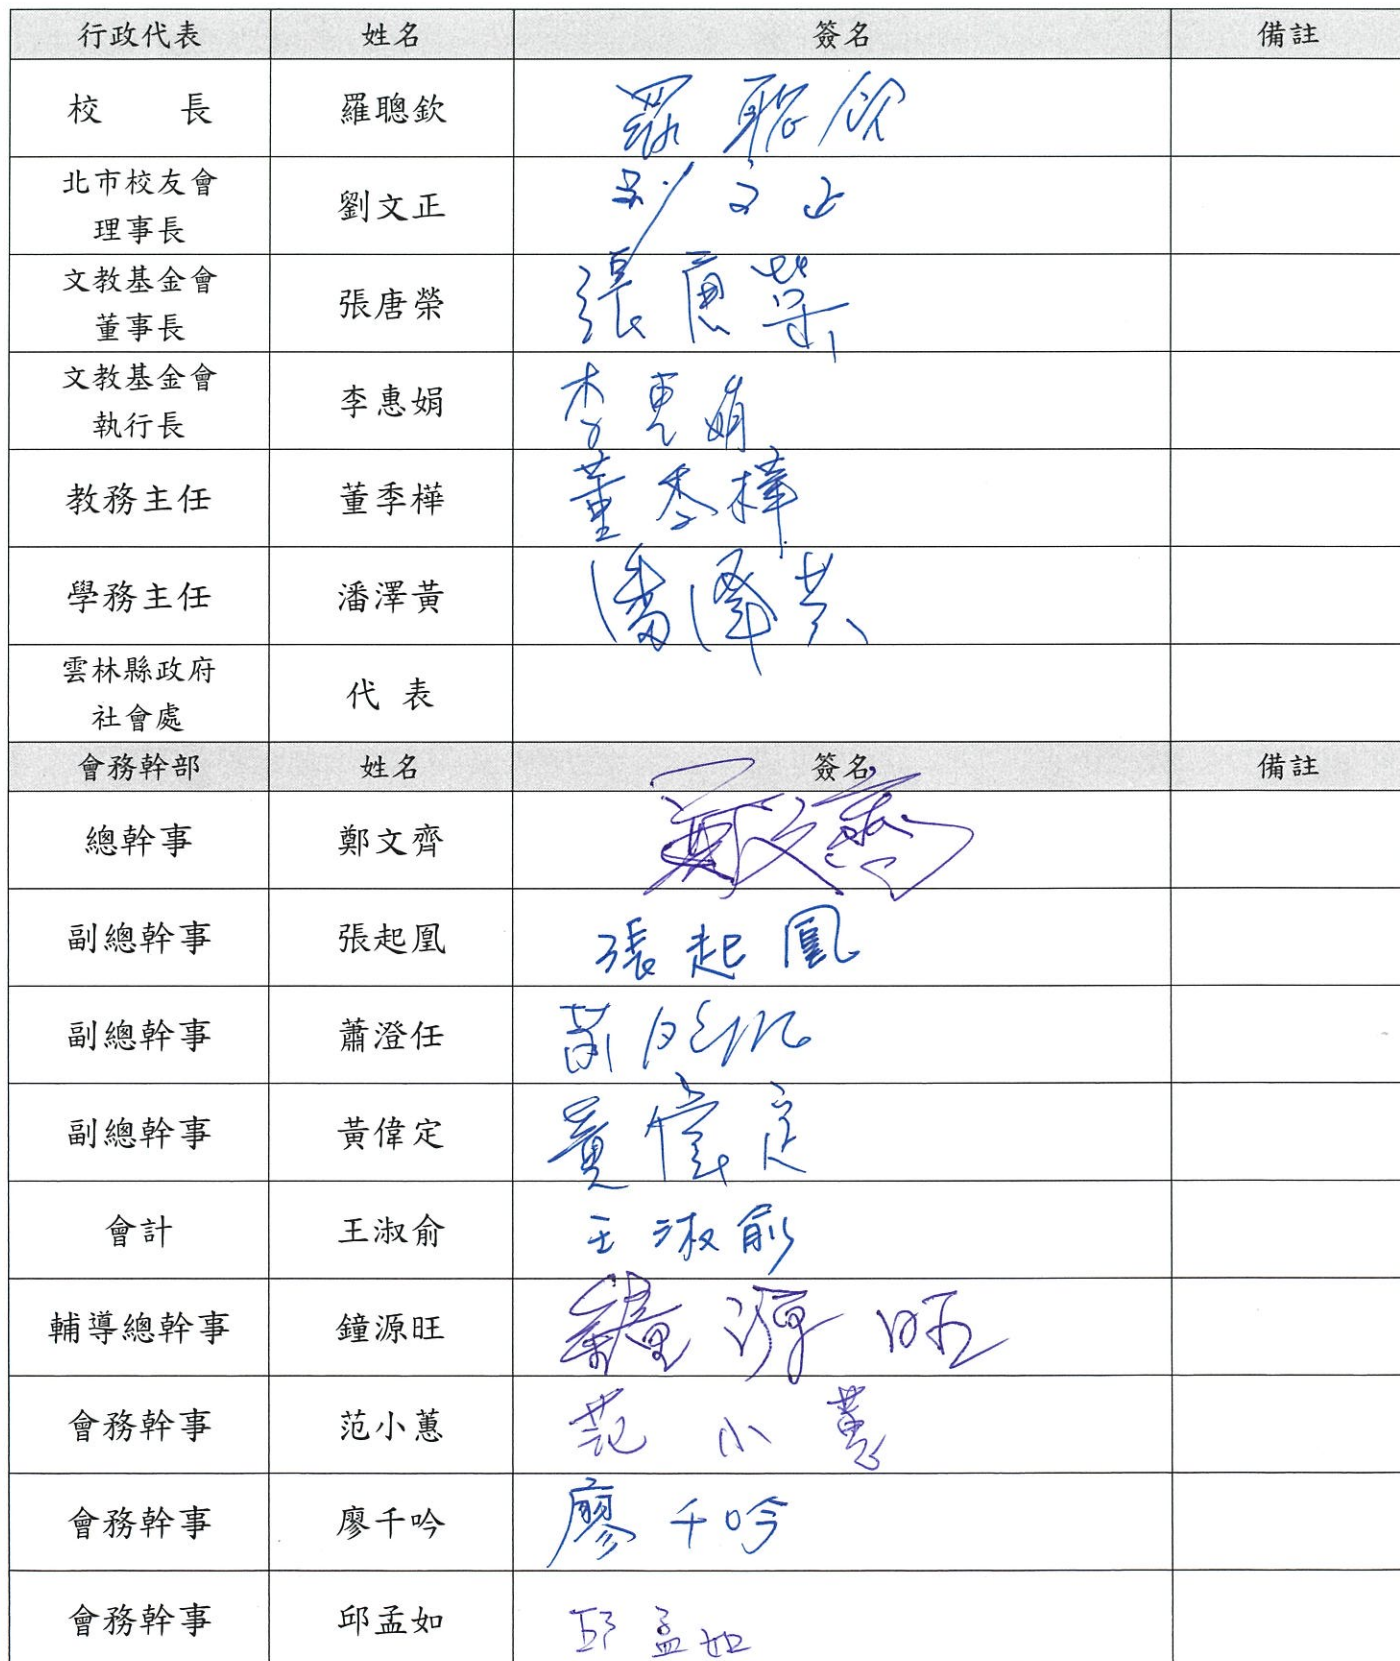 行政代表 姓名 簽名 備註
校 長 羅聰欽 羅聰欽
北市校友會
理事長 劉文正 刘文正
文教基金會
董事長 張唐榮 張唐榮
文教基金會
執行長 李惠娟 李惠娟
教務主任 董季樺 董季樺
學務主任 潘澤黃 潘澤黃
雲林縣政府
社會處 代 表
會務幹部 姓名 簽名 備註
總幹事 鄭文齊 鄭文齊
副總幹事 張起凰 張起凰
副總幹事 蕭澄任
副總幹事 黃偉定 黃偉定
會計 王淑俞 王淑俞
輔導總幹事 鐘源旺 鐘源旺
會務幹事 范小蕙 范小蕙
會務幹事 廖千吟 廖千吟
會務幹事 邱孟如 邱孟如